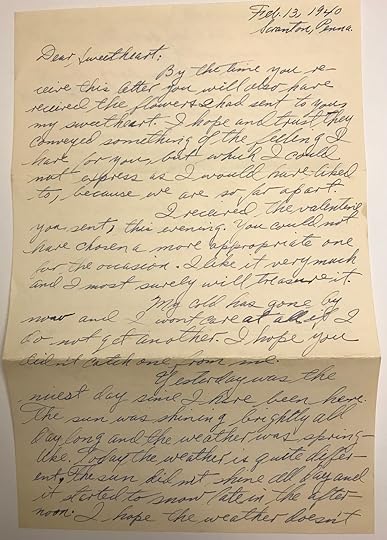 Feb. 13, 1940
Scranton, Penna.
Dear Sweetheart:
By the time you re-
ceive this letter you will also have
received the flowers I had sent to you,
my sweetheart. I hope and trust they
conveyed something of the feeling I
have for you, but which I could
not express as I would have liked
to, because we are so far apart.
I received the valentine
you sent, this evening. You could not
have chosen a more appropriate one
for the occasion. I like it very much
and I most surely will treasure it.
My cold has gone by
now and I won't care at all if I
do not get another. I hope you
didn't catch one from me.
Yesterday was the
nicest day since I have been here.
The sun was shining brightly all
day long and the weather was spring-
like. Today the weather is quite differ-
ent, the sun did not shine all day and
it started to snow late in the after-
noon. I hope the weather doesn't